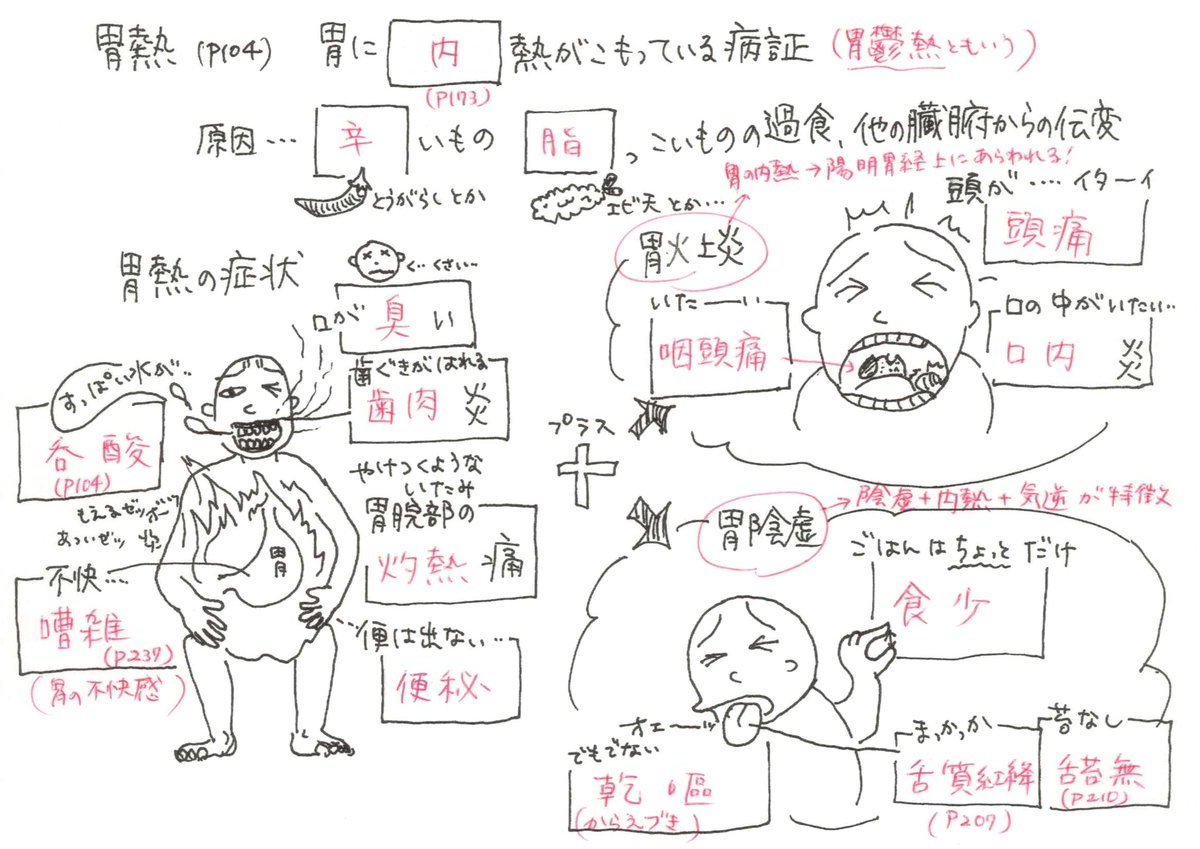 胃熱 (P104) 胃に 内 熱がこもっている病証 (胃鬱熱ともいう)
(P173)
原因… 辛 いもの 脂 っこいものの過食、他の臓腑からの伝変
とうがらしとか
エビ天とか…
胃の内熱→陽明胃経上にあらわれる!
胃熱の症状
く…くさい…
口が 臭 い
歯ぐきがはれる
歯肉炎
すっぱい水が…
呑酸
(P104)
もえるゼッボー
あついゼッ
やけつくような
いたみ
胃脘部の
灼熱痛
胃
不快…
嘈雑
(P237)
(胃の不快感)
便は出ない…
便秘
胃火上炎
頭が…イターイ
頭痛
いたーい
咽頭痛
口の中がいたい…
口内炎
プラス
+
胃陰虚
→陰虚+内熱+気逆が特徴
ごはんはちょっとだけ
食少
オエーッ
でもでない
乾嘔
(からえづき)
まっかっか
舌質紅絳
(P207)
苔なし
舌苔無
(P210)